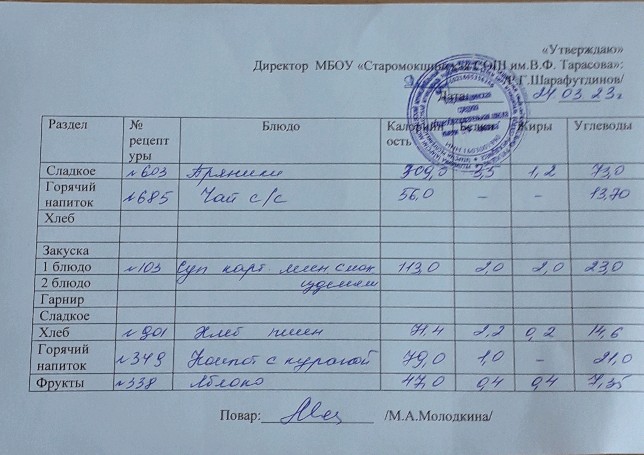 «Утверждаю»
Директор МБОУ «Старомокшинская СОШ им.В.Ф. Тарасова»:
Г.Шарафутдинов/
Дата: 24.03.23г
Раздел № рецептуры Блюдо Калорийность Белки Жиры Углеводы
Сладкое №603 Пряники 309,0 3,5 1,2 73,0
Горячий напиток №685 Чай с/с 56,0 – – 13,70
Хлеб
Закуска
1 блюдо №103 Суп карт. с мак. 113,0 2,0 2,0 23,0
2 блюдо изделием
Гарнир
Сладкое
Хлеб №901 Хлеб пшен 71,4 2,2 0,2 14,6
Горячий напиток №349 Компот с курагой 79,0 1,0 – 21,0
Фрукты №338 Яблоко 47,0 0,4 0,4 7,35
Повар: /М.А.Молодкина/